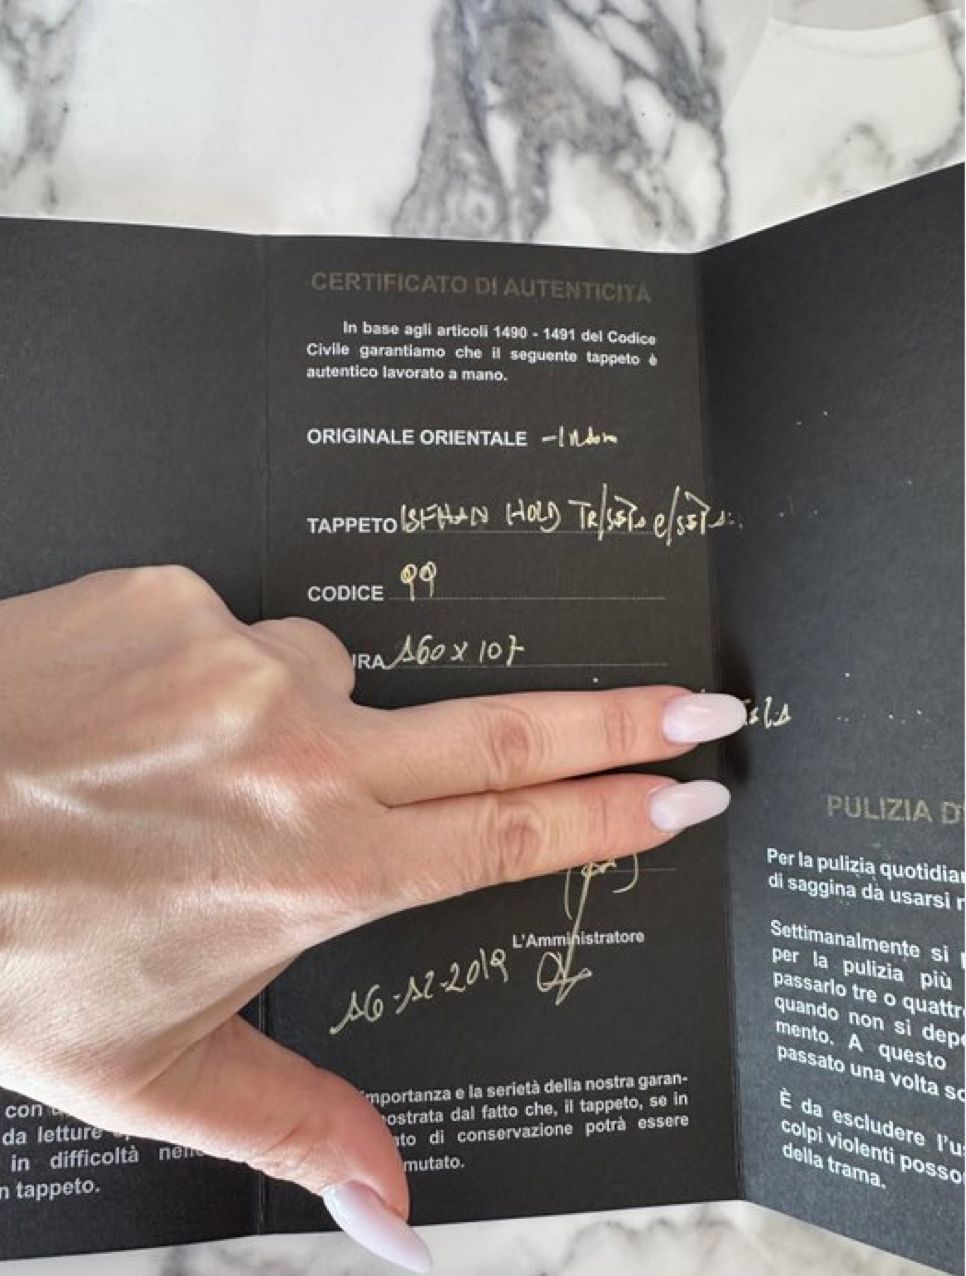 CERTIFICATO DI AUTENTICITÀ
In base agli articoli 1490 - 1491 del Codice
Civile garantiamo che il seguente tappeto è
autentico lavorato a mano.
ORIGINALE ORIENTALE
TAPPETO ISFHAN
CODICE 99
URA 160 x 107
L'Amministratore
16-12-2019
mportanza e la serietà della nostra garan-
ostrata dal fatto che, il tappeto, se in
ato di conservazione potrà essere
mutato.
con
da letture
in difficoltà
n tappeto.
PULIZIA D
Per la pulizia quotidia
di saggina da usarsi
Settimanalmente si
per la pulizia più
passarlo tre o quattr
quando non si dep
mento. A questo
passato una volta
È da escludere l'u
colpi violenti posso
della trama.